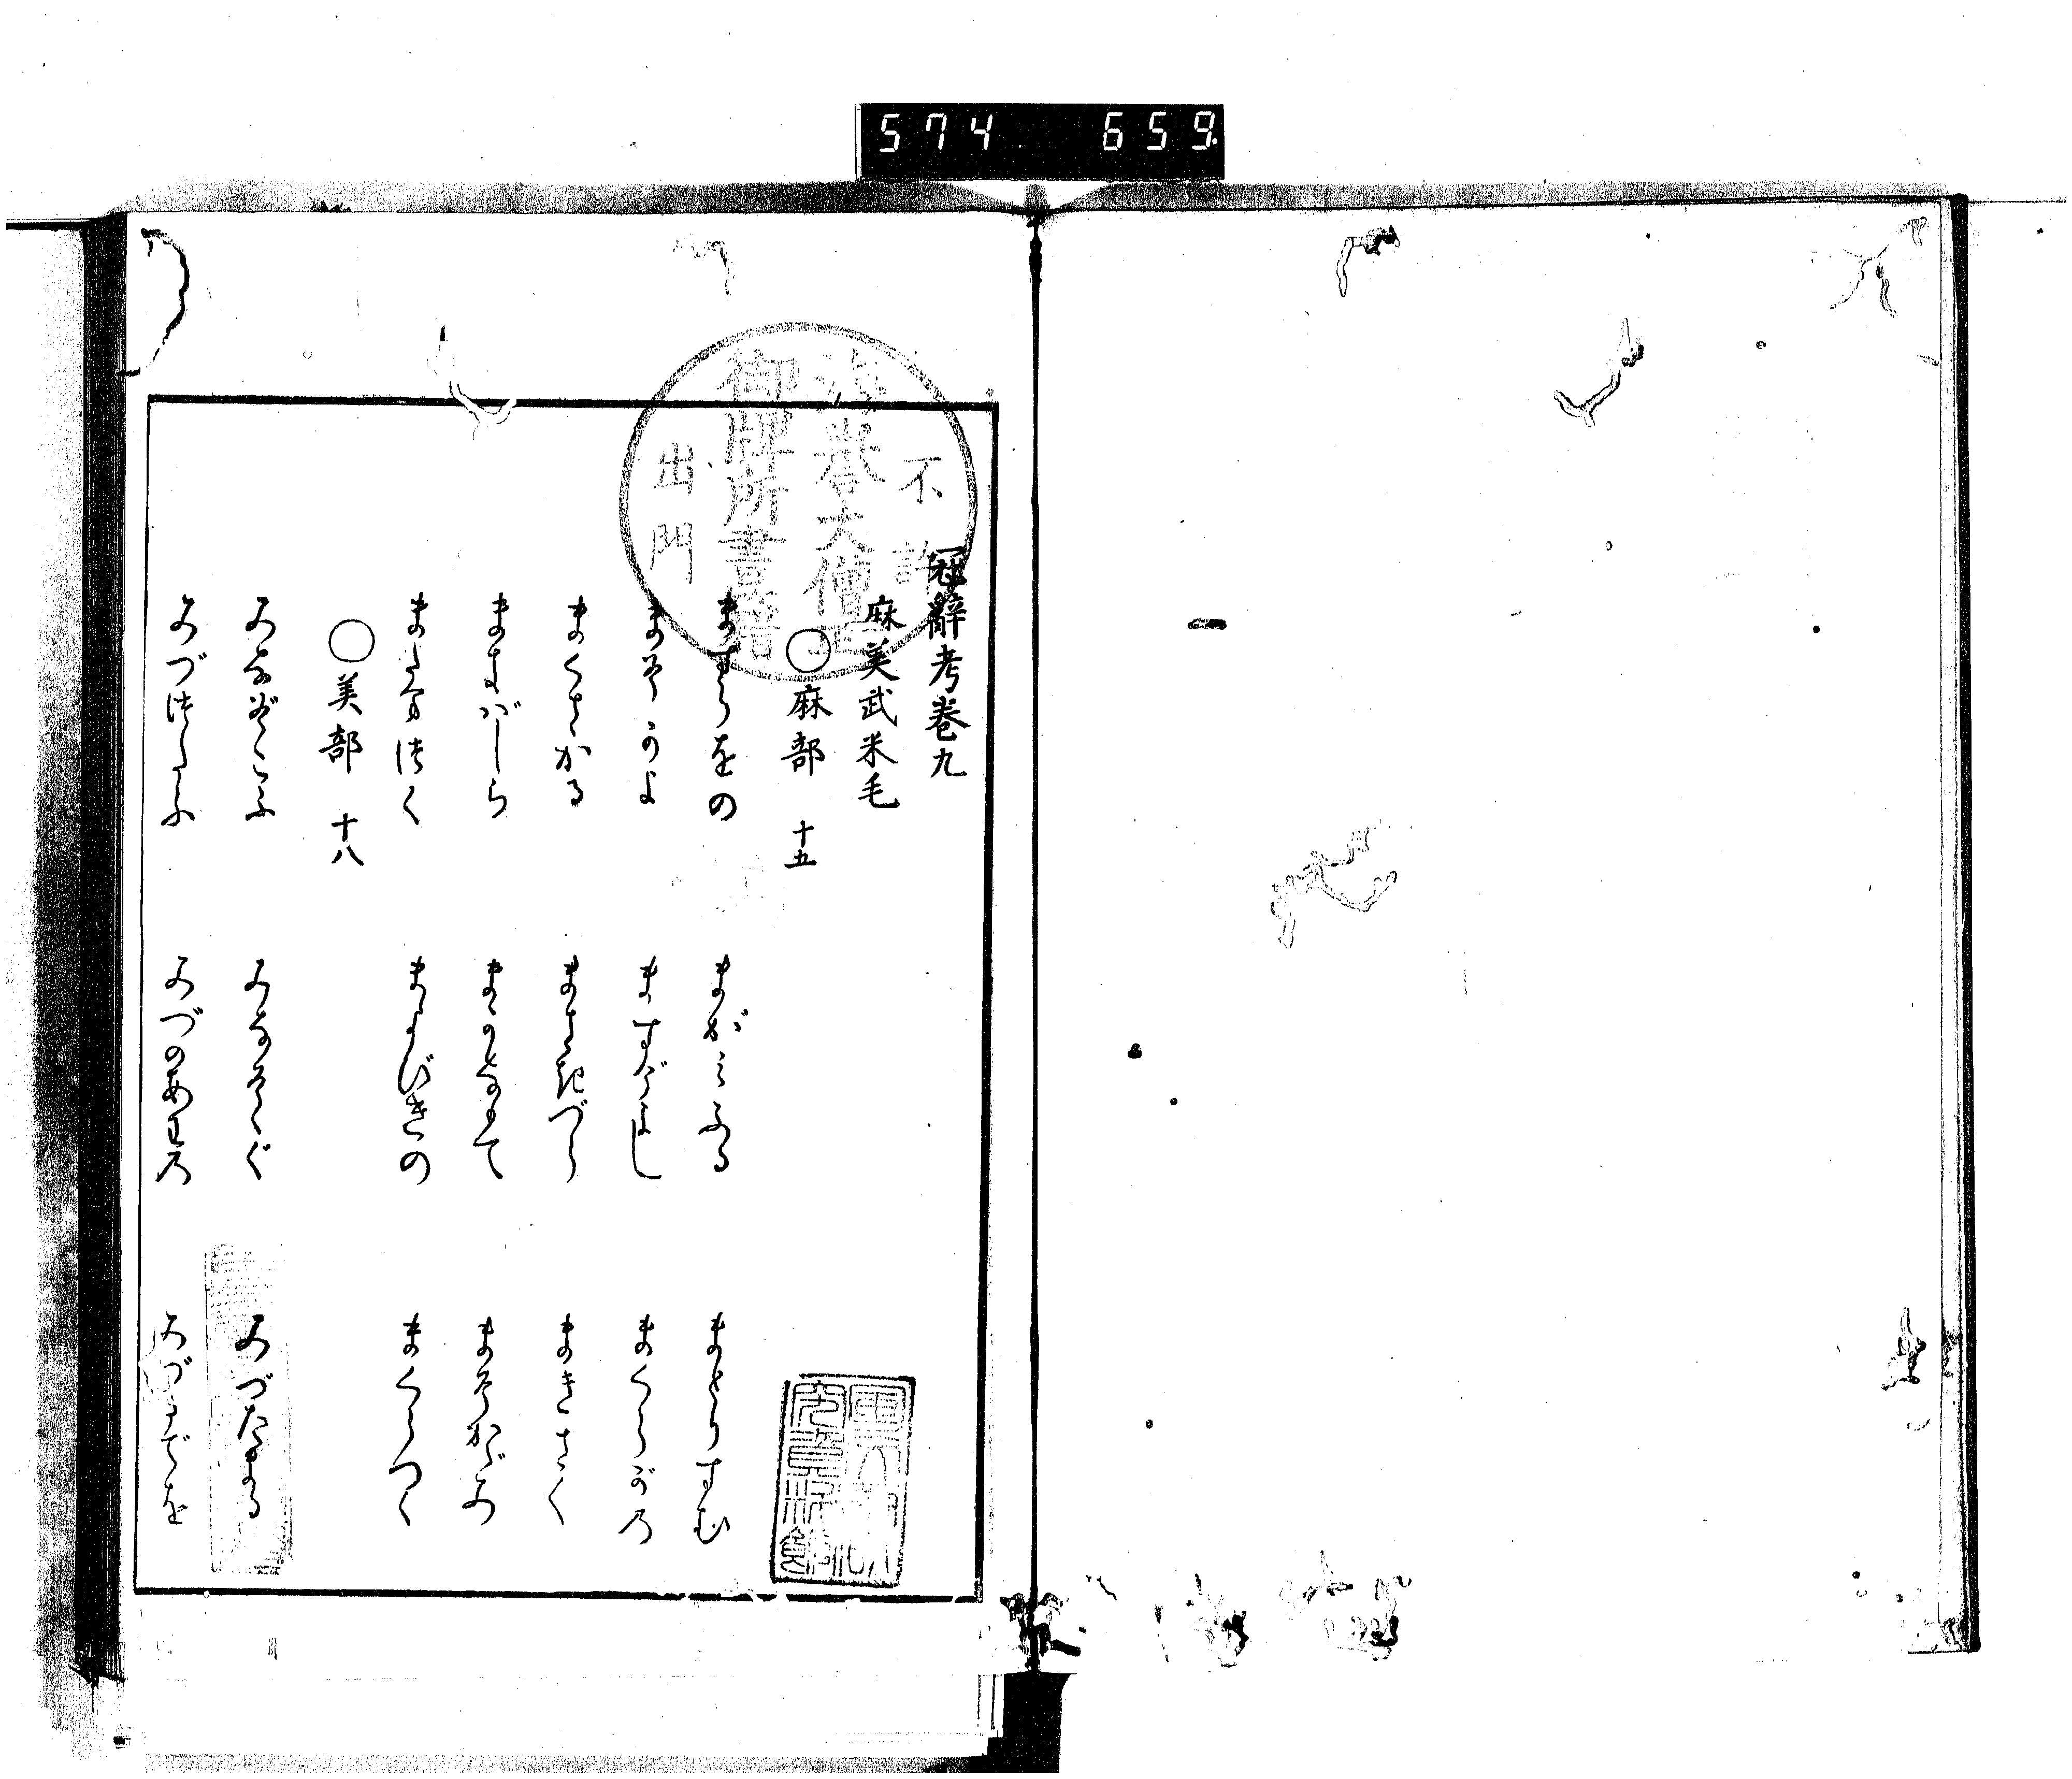 574 659
不許
大僧正
御牌所書籍
出門
冠辭考卷九
麻美武米毛
○麻部 十五
ますらをの まがみふる まとりすむ
まそかよ ますげよし まくらがの
まくさかる まさきづら まきさく
まきばしら まかなもて まそかゞみ
またまつく まよびきの まくらつく
○美部 十八
みなぞこふ みなそゝぐ みづたまる
みづつたふ みづのあわの みづたでを